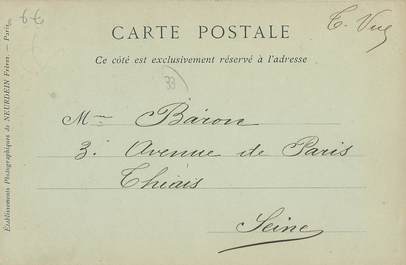 CARTE POSTALE
Ce côté est exclusivement réservé à l'adresse
33
Mme Baron
3. Avenue de Paris
Thiais
Seine
Etablissements Photographiques de NEURDEIN Frères. — Paris.